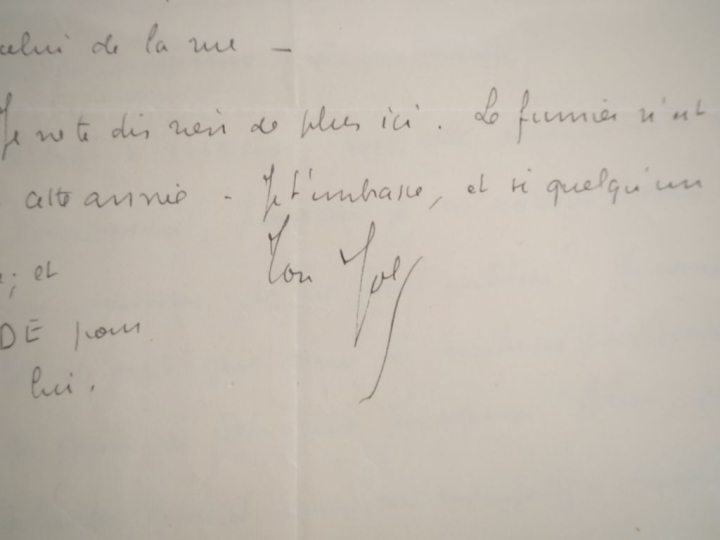 celui de la rue –
Je ne te dis rien de plus ici. Le fumier n'est
cette année – Je t'embrasse, et si quelqu'un
; et
Ton
DE pour
lui.